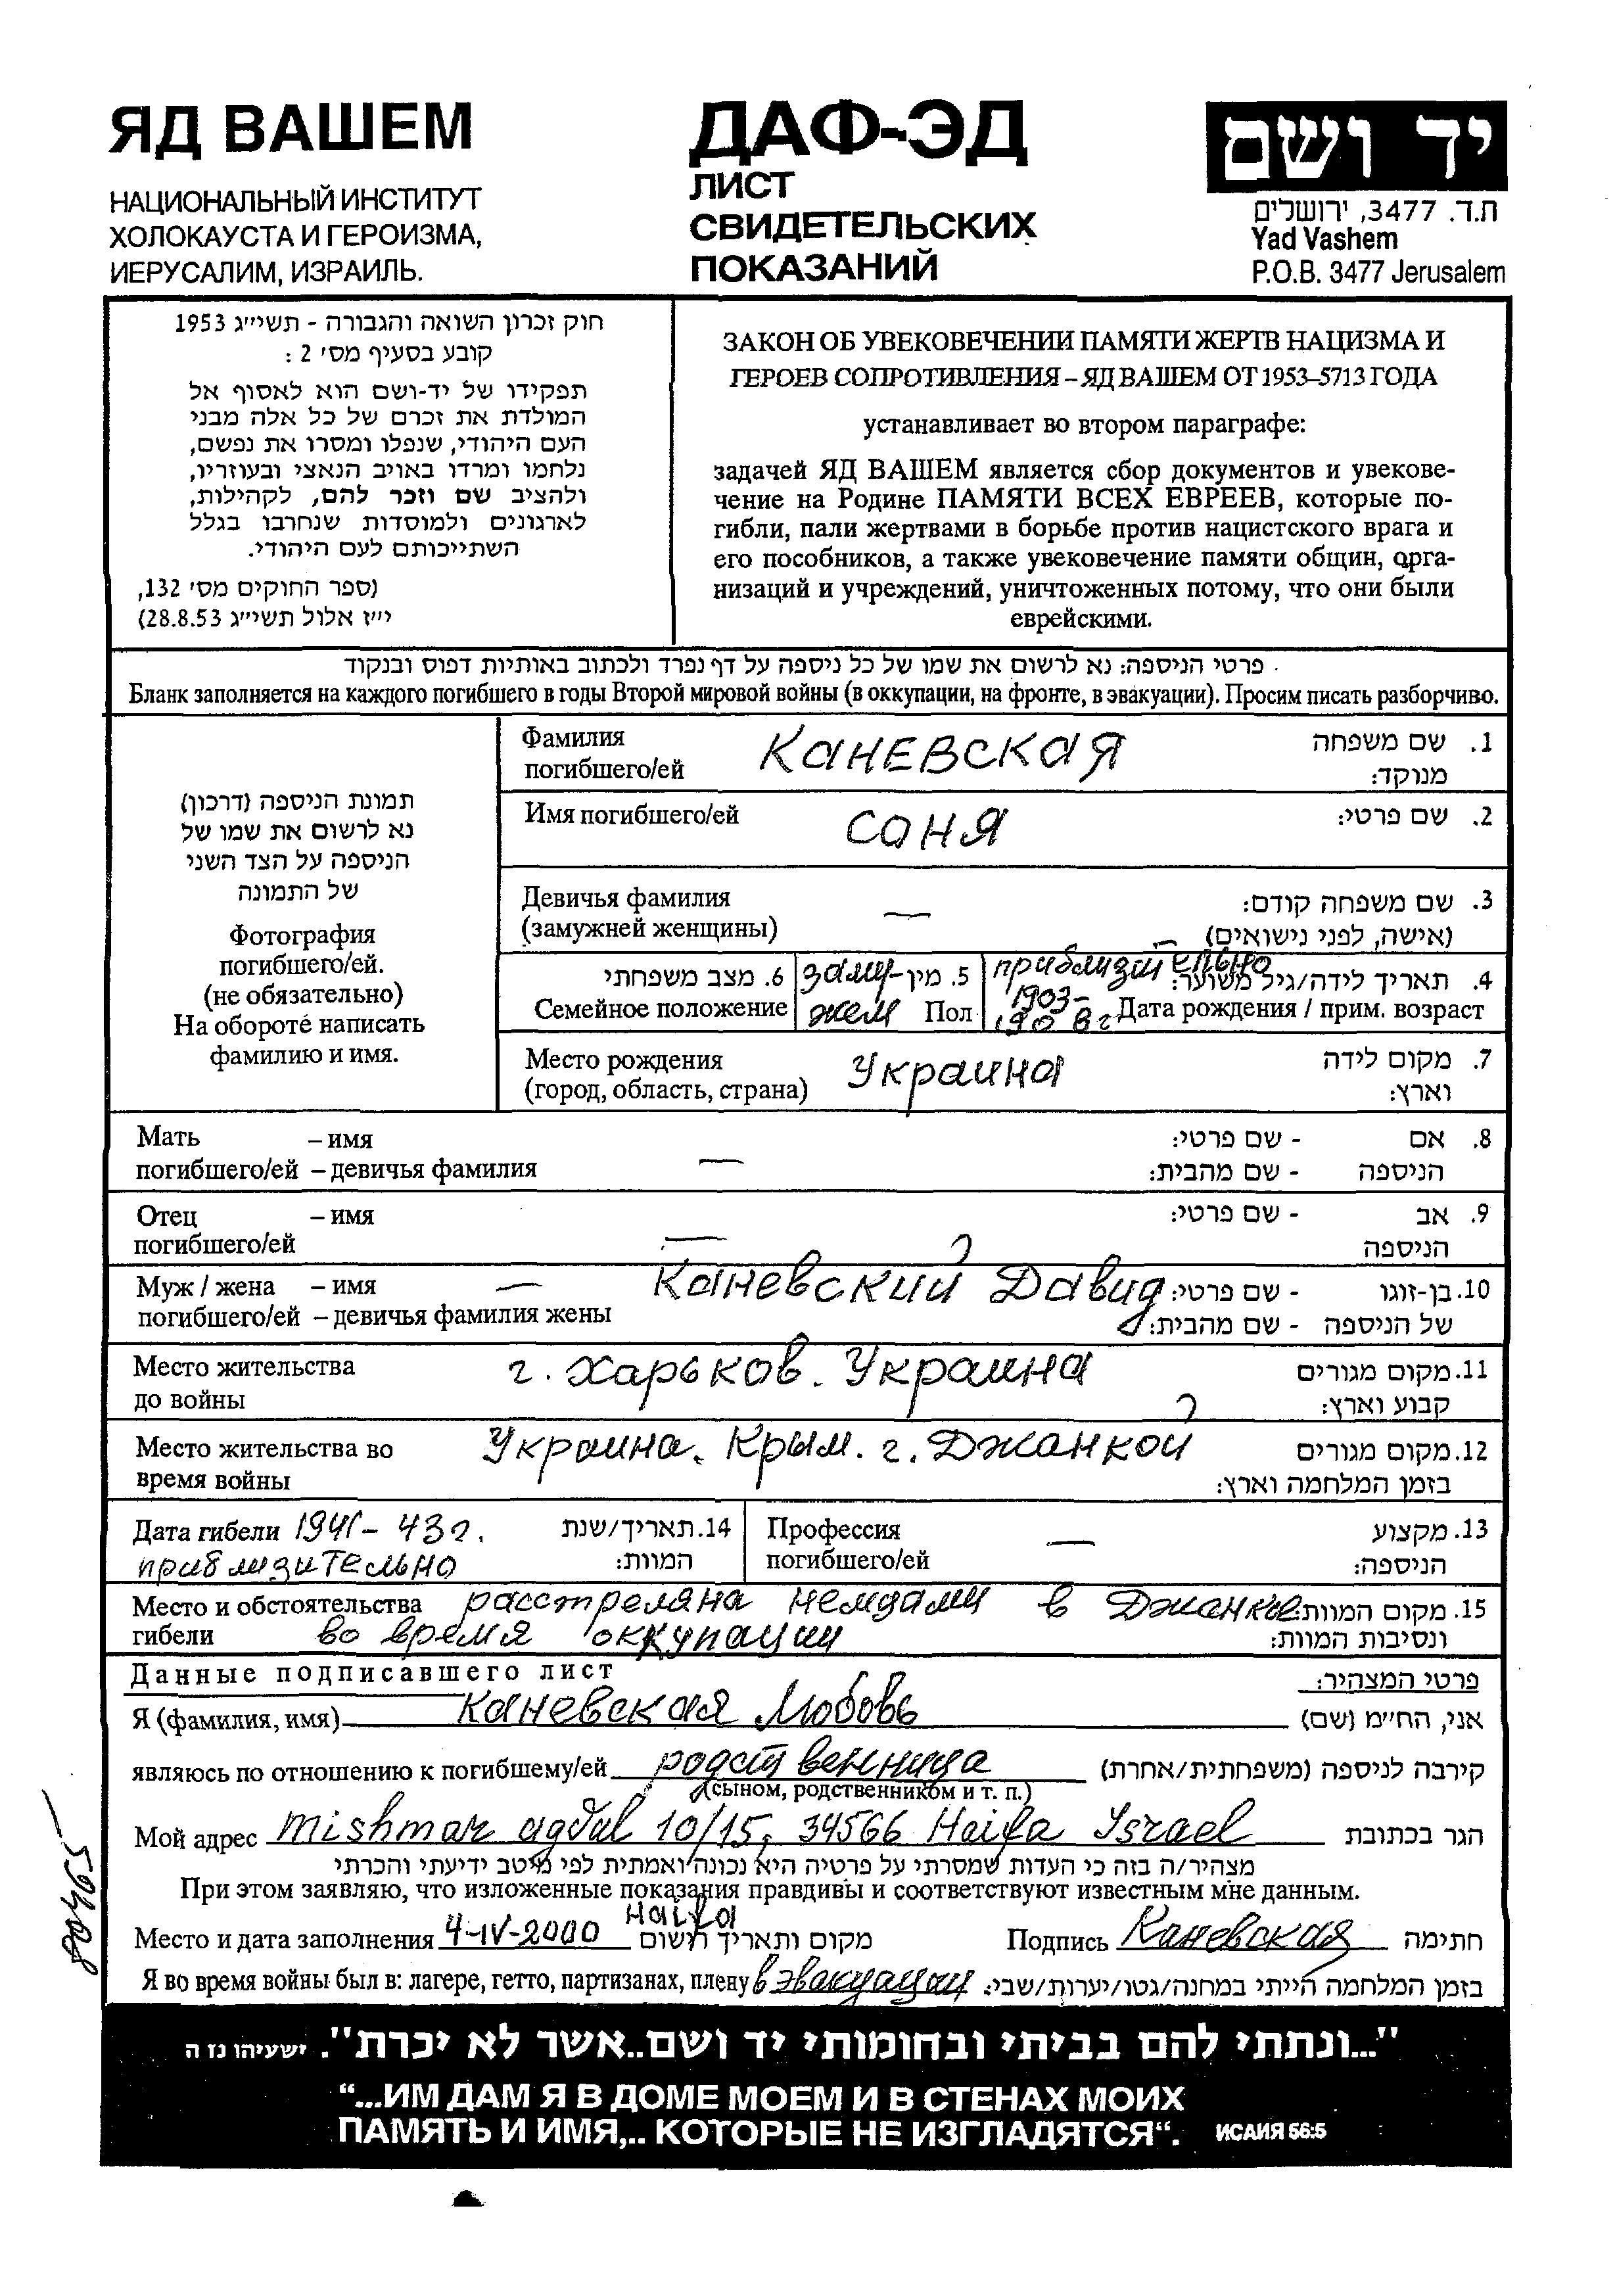 ЯД ВАШЕМ
НАЦИОНАЛЬНЫЙ ИНСТИТУТ
ХОЛОКАУСТА И ГЕРОИЗМА,
ИЕРУСАЛИМ, ИЗРАИЛЬ.
ДАФ-ЭД
ЛИСТ
СВИДЕТЕЛЬСКИХ
ПОКАЗАНИЙ
יד ושם
ת.ד. 3477, ירושלים
Yad Vashem
P.O.B. 3477 Jerusalem
חוק זכרון השואה והגבורה - תשי"ג 1953
קובע בסעיף מס' 2 :
תפקידו של יד-ושם הוא לאסוף אל
המולדת את זכרם של כל אלה מבני
העם היהודי, שנפלו ומסרו את נפשם,
נלחמו ומרדו באויב הנאצי ובעוזריו,
ולהציב שם וזכר להם, לקהילות,
לארגונים ולמוסדות שנחרבו בגלל
השתייכותם לעם היהודי.
(ספר החוקים מס' 132,
י"ז אלול תשי"ג 28.8.53)
ЗАКОН ОБ УВЕКОВЕЧЕНИИ ПАМЯТИ ЖЕРТВ НАЦИЗМА И
ГЕРОЕВ СОПРОТИВЛЕНИЯ – ЯД ВАШЕМ ОТ 1953–5713 ГОДА
устанавливает во втором параграфе:
задачей ЯД ВАШЕМ является сбор документов и увекове-
чение на Родине ПАМЯТИ ВСЕХ ЕВРЕЕВ, которые по-
гибли, пали жертвами в борьбе против нацистского врага и
его пособников, а также увековечение памяти общин, орга-
низаций и учреждений, уничтоженных потому, что они были
еврейскими.
פרטי הניספה: נא לרשום את שמו של כל ניספה על דף נפרד ולכתוב באותיות דפוס ובנקוד
Бланк заполняется на каждого погибшего в годы Второй мировой войны (в оккупации, на фронте, в эвакуации). Просим писать разборчиво.
תמונת הניספה (דרכון)
נא לרשום את שמו של
הניספה על הצד השני
של התמונה
Фотография
погибшего/ей.
(не обязательно)
На обороте написать
фамилию и имя.
Фамилия КАНЕВСКАЯ 1. שם משפחה
погибшего/ей מנוקד:
Имя погибшего/ей СОНЯ 2. שם פרטי:
Девичья фамилия — 3. שם משפחה קודם:
(замужней женщины) (אישה, לפני נישואים)
6. מצב משפחתי заму- 5. מין приблизительно 4. תאריך לידה/גיל משוער:
Семейное положение жем Пол 1903-1908 г Дата рождения / прим. возраст
Место рождения Украина 7. מקום לידה
(город, область, страна) וארץ:
Мать – имя 8. אם - שם פרטי:
погибшего/ей – девичья фамилия — הניספה - שם מהבית:
Отец – имя — 9. אב - שם פרטי:
погибшего/ей הניספה
Муж / жена – имя — Каневский Давид 10. בן-זוגו - שם פרטי:
погибшего/ей – девичья фамилия жены של הניספה - שם מהבית:
Место жительства г. Харьков. Украина 11. מקום מגורים
до войны קבוע וארץ:
Место жительства во Украина. Крым. г. Джанкой 12. מקום מגורים
время войны בזמן המלחמה וארץ:
Дата гибели 1941-43г. 14. תאריך/שנת
приблизительно המוות:
Профессия — 13. מקצוע
погибшего/ей הניספה:
Место и обстоятельства расстреляна немцами в Джанкое 15. מקום המוות
гибели во время оккупации ונסיבות המוות:
Данные подписавшего лист פרטי המצהיר:
Я (фамилия, имя) Каневская Любовь אני, הח"מ (שם)
являюсь по отношению к погибшему/ей родственница קירבה לניספה (משפחתית/אחרת)
(сыном, родственником и т. п.)
Мой адрес Mishmar agvul 10/15, 34566 Haifa Israel הגר בכתובת
מצהיר/ה בזה כי העדות שמסרתי על פרטיה היא נכונה ואמתית לפי מיטב ידיעתי והכרתי
При этом заявляю, что изложенные показания правдивы и соответствуют известным мне данным.
Haifa
Место и дата заполнения 4-IV-2000 מקום ותאריך רשום Подпись Каневская חתימה
Я во время войны был в: лагере, гетто, партизанах, плену в эвакуации בזמן המלחמה הייתי במחנה/גטו/יערות/שבי:
59408
"...ונתתי להם בביתי ובחומותי יד ושם..אשר לא יכרת". ישעיהו נז ה
“...ИМ ДАМ Я В ДОМЕ МОЕМ И В СТЕНАХ МОИХ
ПАМЯТЬ И ИМЯ,.. КОТОРЫЕ НЕ ИЗГЛАДЯТСЯ“. ИСАИЯ 56:5